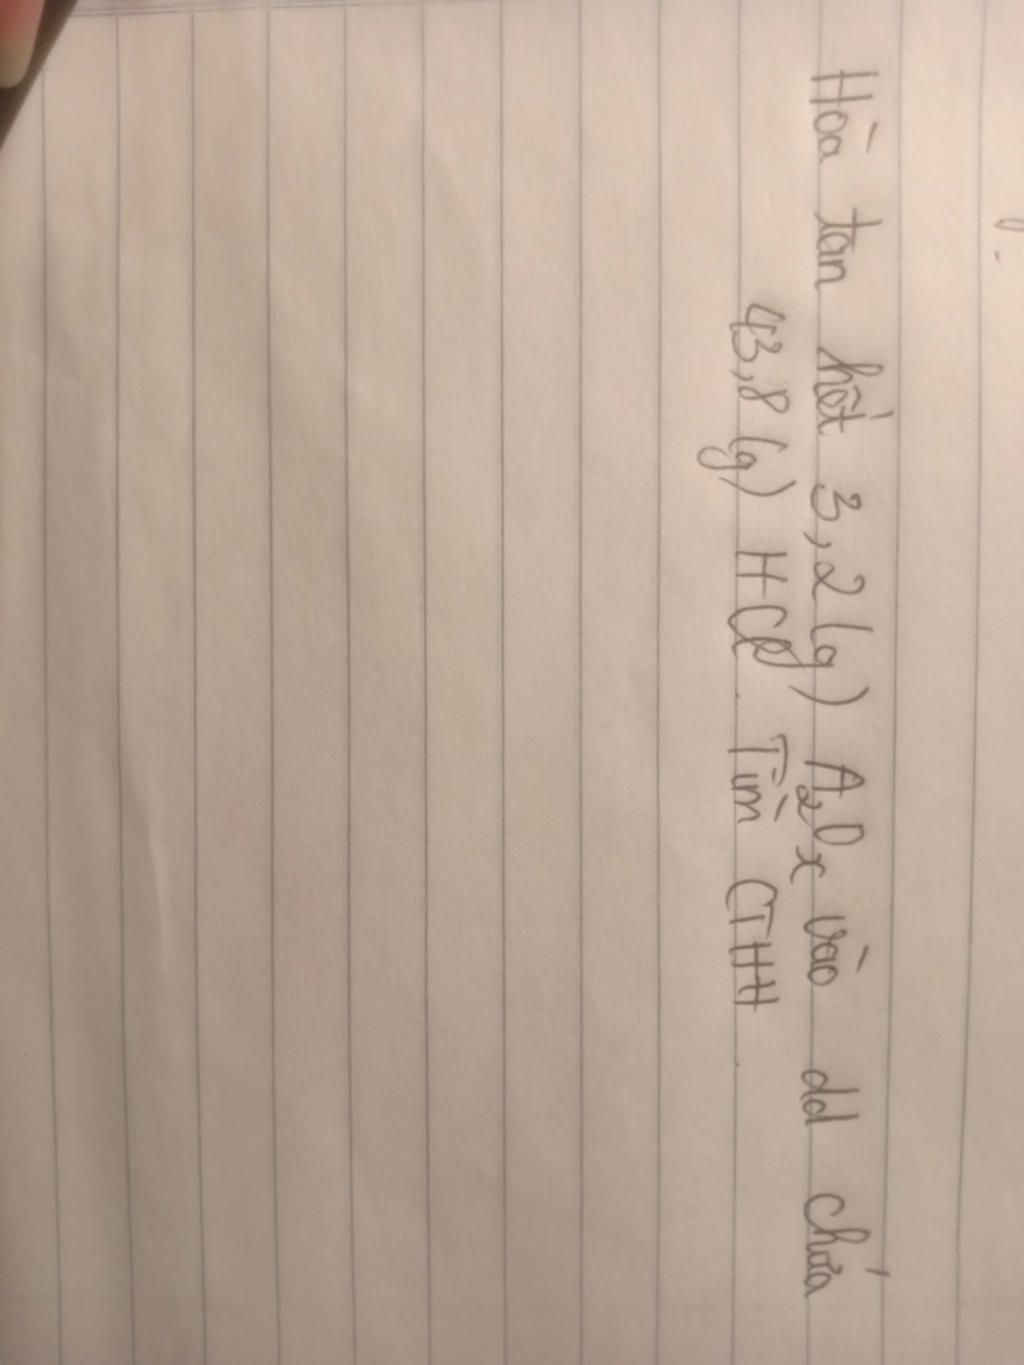 Hòa tan hết 3,2 (g) A₂Oₓ vào dd chứa
43,8 (g) HCl. Tìm CTHH.